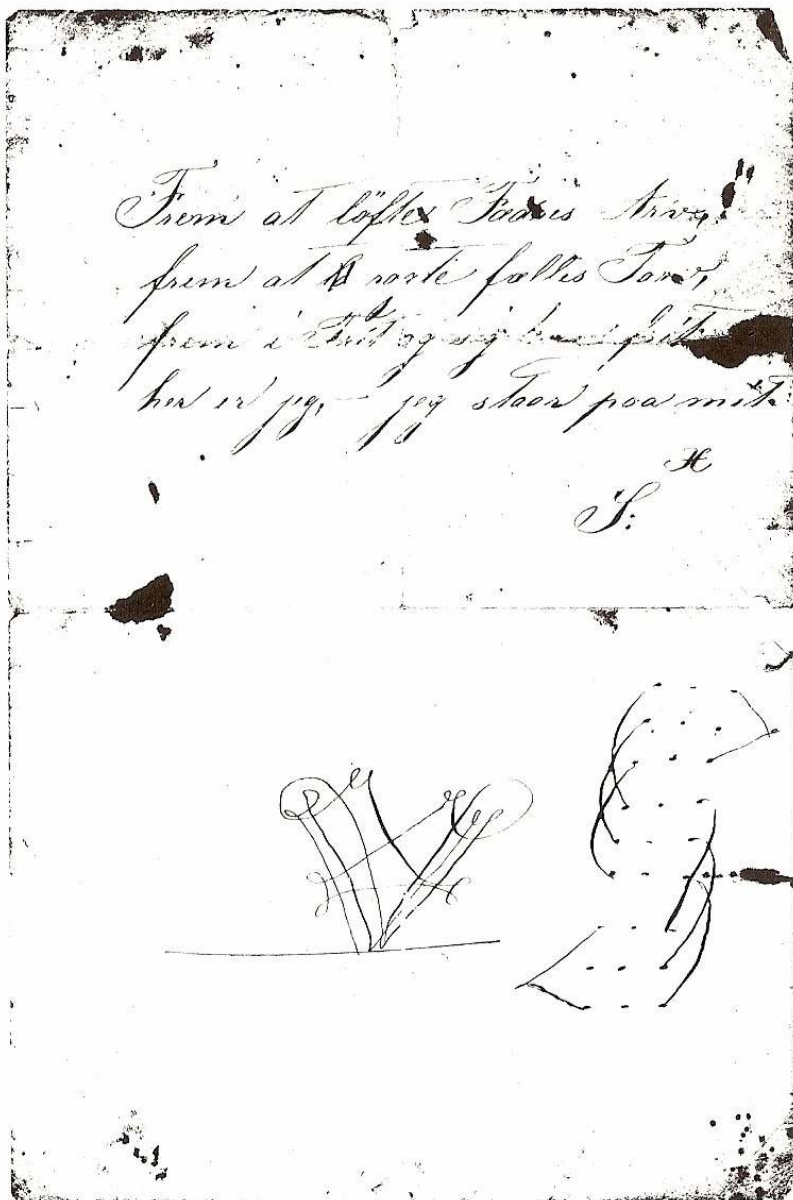 Frem at löfte Fædres Arv,
frem at röste fælles Tarv,
frem i Frit og sig kun frit
her er jeg, – jeg staar paa mit.
H
S: